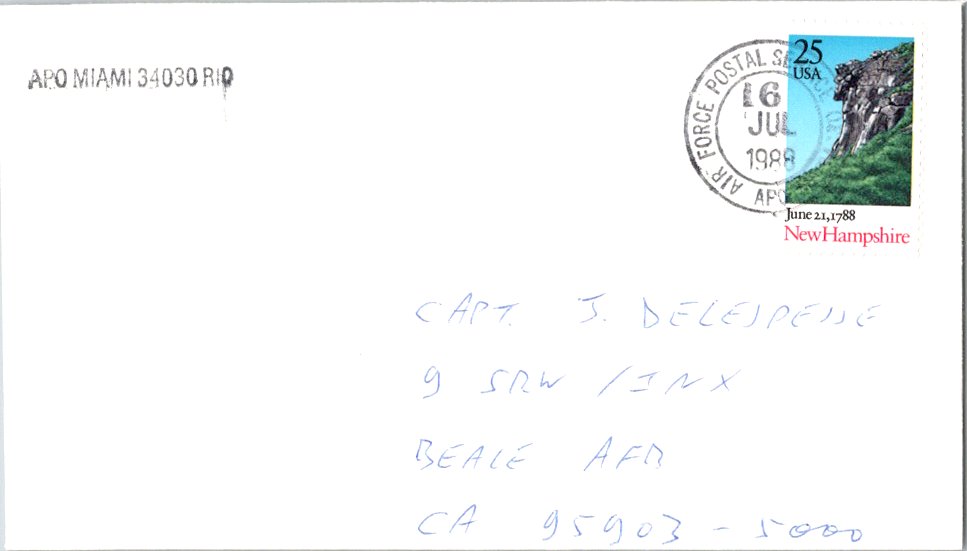 APO MIAMI 34030 RIO
AIR FORCE POSTAL SERVICE
16
JUL
1988
APO
25
USA
June 21, 1788
New Hampshire
CAPT. J. DELESPESSE
9 SRW / INX
BEALE AFB
CA 95903-5000